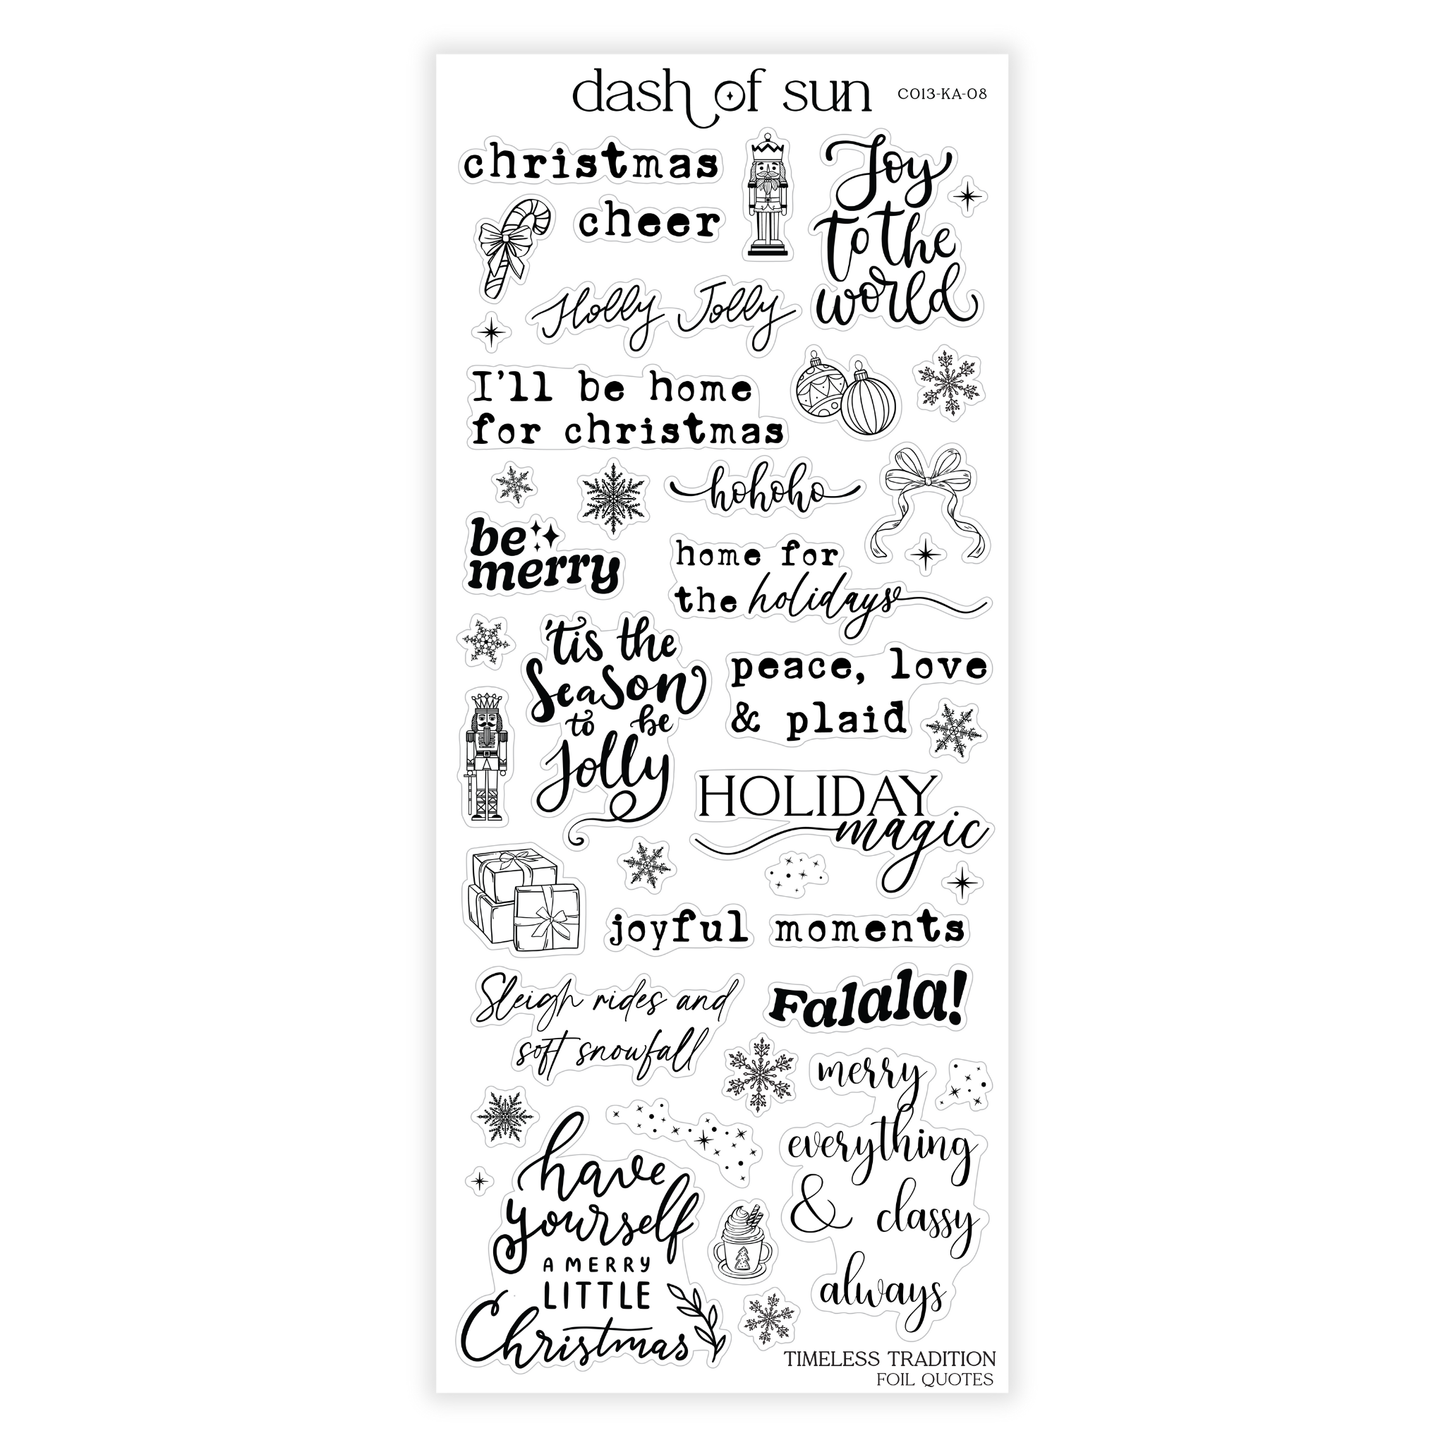 dash of sun
C013-KA-08
christmas
cheer
Joy
to the
world
Holly Jolly
I'll be home
for christmas
hohoho
be
merry
home for
the holidays
'tis the
Season
to be
Jolly
peace, love
& plaid
HOLIDAY
magic
joyful moments
Sleigh rides and
soft snowfall
Falala!
merry
everything
& classy
always
have
yourself
A MERRY
LITTLE
Christmas
TIMELESS TRADITION
FOIL QUOTES